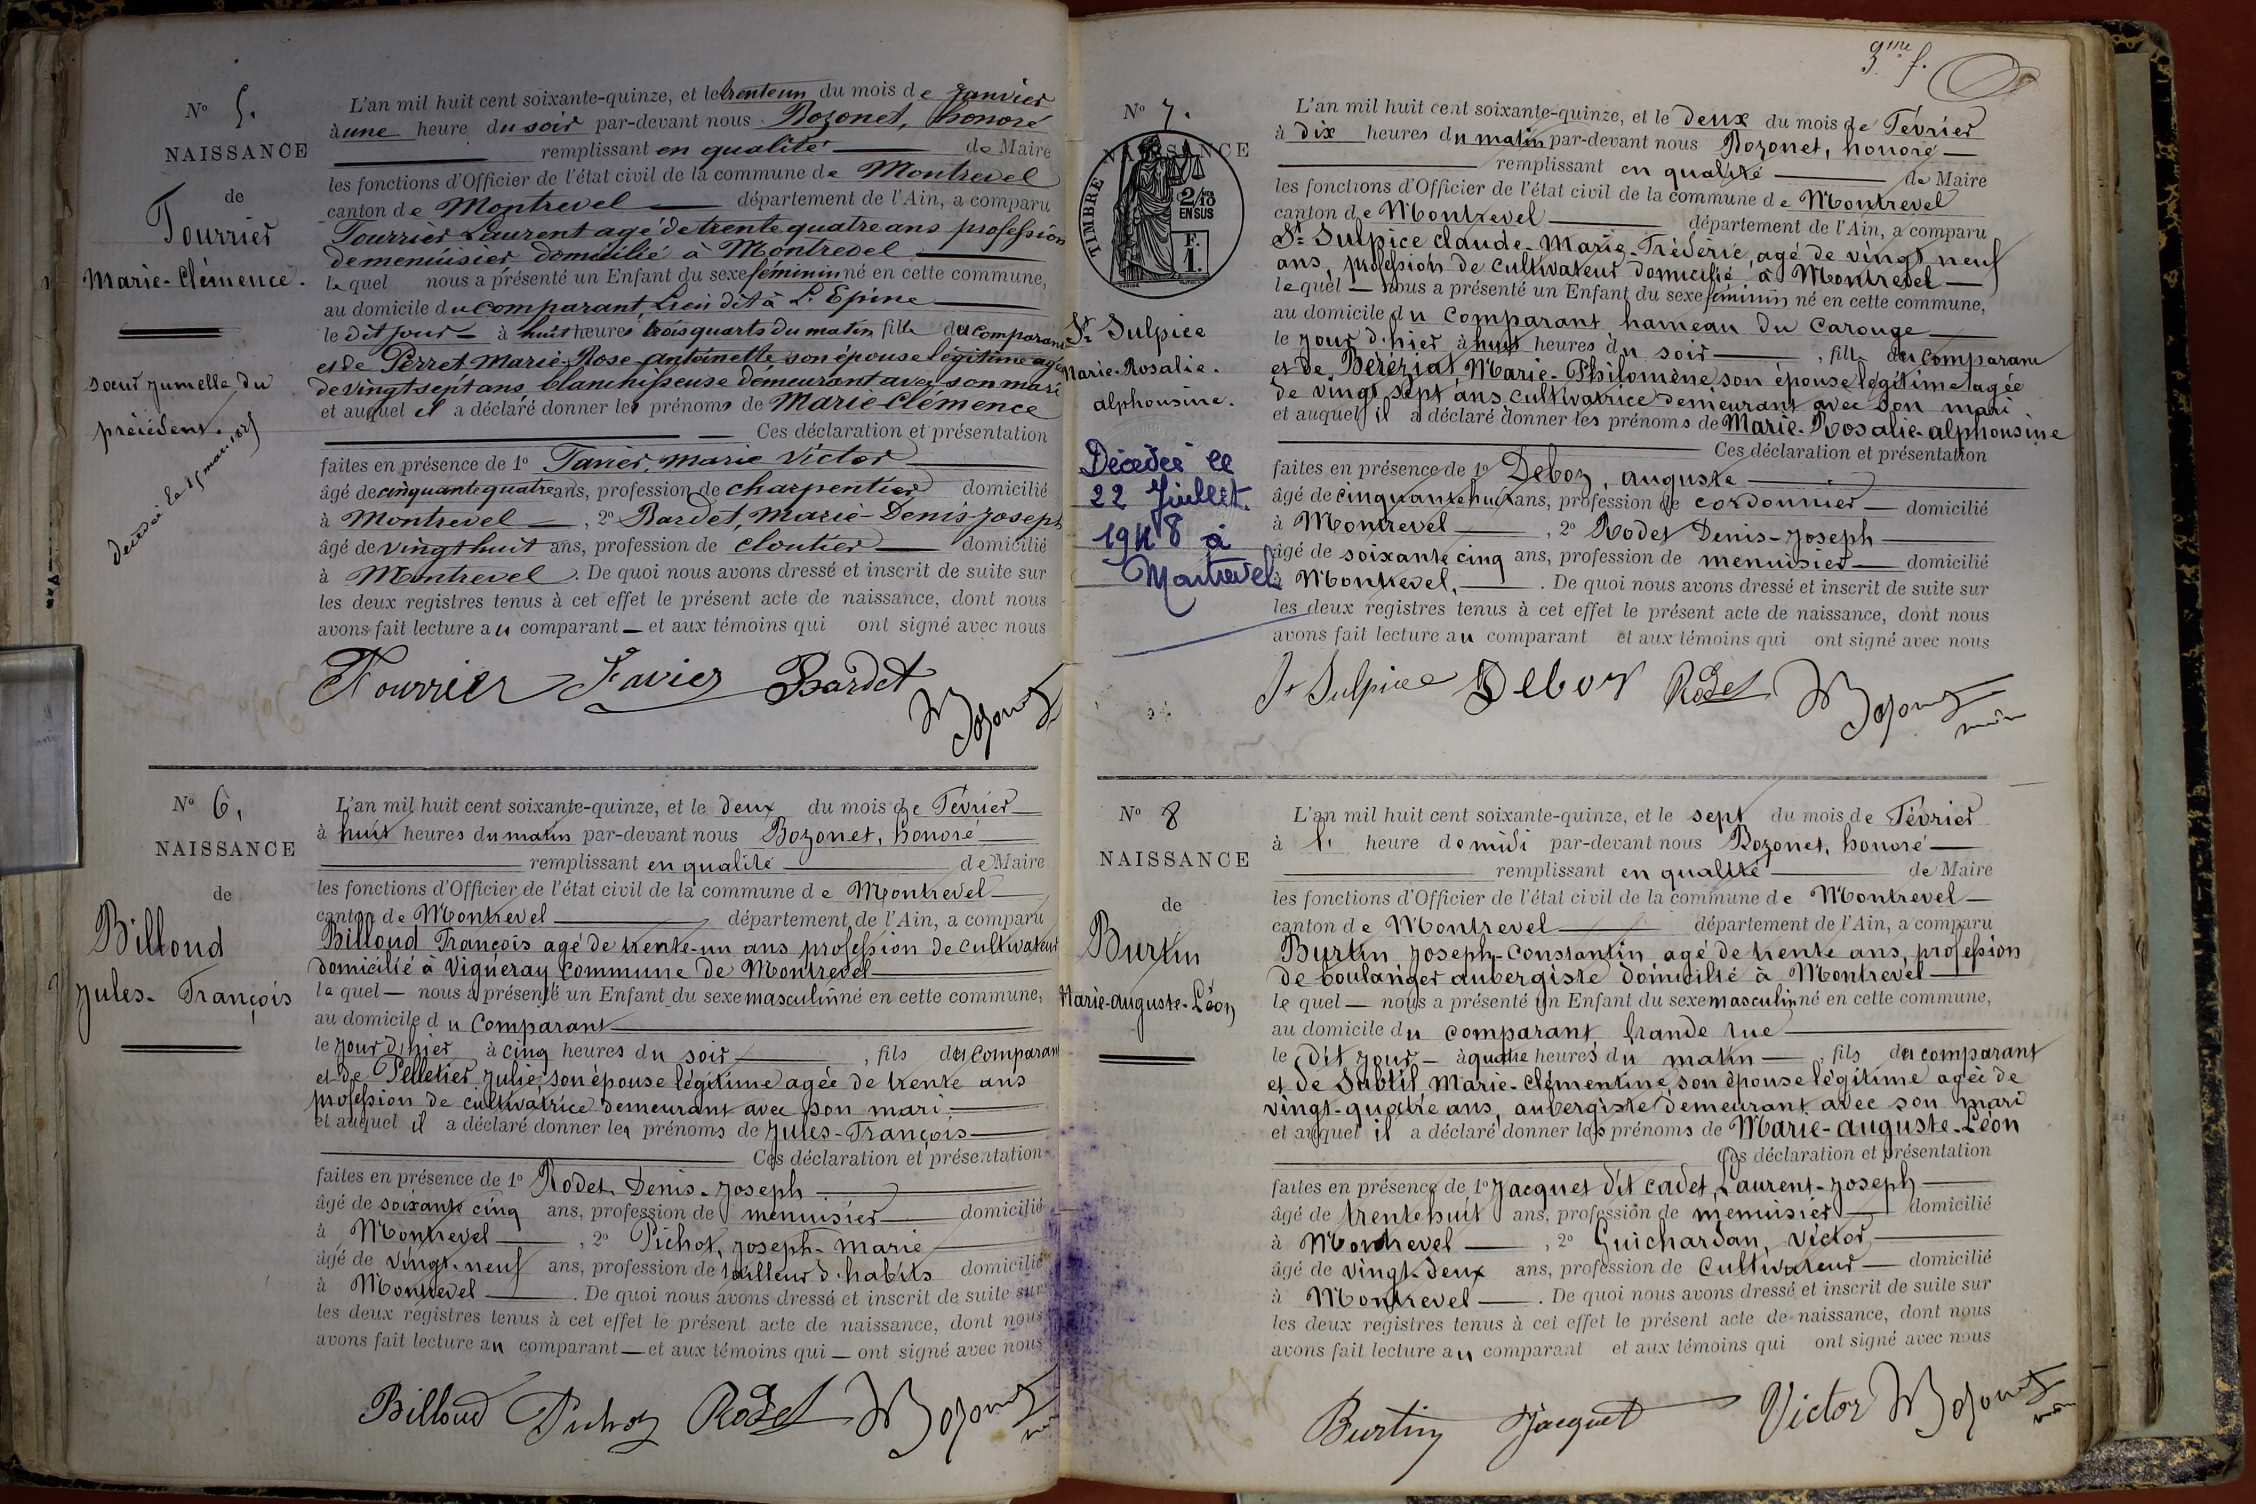 N° 5.
NAISSANCE
de
Fourrier
Marie-Clémence.
soeur jumelle du
précédent.
décédée le 15 mars 1875
L'an mil huit cent soixante-quinze, et le trente un du mois de Janvier
à une heure du soir par-devant nous Bozonet, honoré
remplissant en qualité de Maire
les fonctions d'Officier de l'état civil de la commune de Montrevel
canton de Montrevel département de l'Ain, a comparu
Fourrier Laurent agé de trente quatre ans profession
de menuisier domicilié à Montrevel
lequel nous a présenté un Enfant du sexe féminin né en cette commune,
au domicile du comparant, Lieu dit à L'Epine
le dit jour à huit heures trois quarts du matin fille du comparant
et de Perret Marie-Rose-antoinette, son épouse légitime agée
de vingt sept ans, blanchisseuse demeurant avec son mari
et auquel il a déclaré donner les prénoms de Marie Clémence
Ces déclaration et présentation
faites en présence de 1° Favier, Marie Victor
âgé de cinquante quatre ans, profession de charpentier domicilié
à Montrevel, 2° Bardet, Marie-Denis-Joseph
âgé de vingt huit ans, profession de cloutier domicilié
à Montrevel. De quoi nous avons dressé et inscrit de suite sur
les deux registres tenus à cet effet le présent acte de naissance, dont nous
avons fait lecture au comparant et aux témoins qui ont signé avec nous
Fourrier Favier Bardet
Bozonet
N° 6.
NAISSANCE
de
Billoud
Jules-François
L'an mil huit cent soixante-quinze, et le deux du mois de Février
à huit heures du matin par-devant nous Bozonet, honoré
remplissant en qualité de Maire
les fonctions d'Officier de l'état civil de la commune de Montrevel
canton de Montrevel département de l'Ain, a comparu
Billoud François agé de trente-un ans profession de cultivateur
domicilié à Vigueray commune de Montrevel
lequel nous a présenté un Enfant du sexe masculin né en cette commune,
au domicile du comparant
le jour d'hier à cinq heures du soir, fils du comparant
et de Pelletier Julie, son épouse légitime agée de trente ans
profession de cultivatrice demeurant avec son mari,
et auquel il a déclaré donner les prénoms de Jules-François
Ces déclaration et présentation
faites en présence de 1° Rodet, Denis-Joseph
âgé de soixante cinq ans, profession de menuisier domicilié
à Montrevel, 2° Pichot, Joseph-Marie
âgé de vingt-neuf ans, profession de tailleur d'habits domicilié
à Montrevel. De quoi nous avons dressé et inscrit de suite sur
les deux registres tenus à cet effet le présent acte de naissance, dont nous
avons fait lecture au comparant et aux témoins qui ont signé avec nous
Billoud Pichot Rodet Bozonet
3me f.
N° 7.
NAISSANCE
TIMBRE
2/10
EN SUS
F.
1.
St Sulpice
Marie-Rosalie-
alphonsine.
Décédée le
22 Juillet
1948 à
Montrevel
L'an mil huit cent soixante-quinze, et le deux du mois de Février
à dix heures du matin par-devant nous Bozonet, honoré
remplissant en qualité de Maire
les fonctions d'Officier de l'état civil de la commune de Montrevel
canton de Montrevel département de l'Ain, a comparu
St Sulpice Claude-Marie-Fréderic, agé de vingt neuf
ans, profession de cultivateur domicilié à Montrevel
lequel nous a présenté un Enfant du sexe féminin né en cette commune,
au domicile du comparant hameau du Carouge
le jour d'hier à huit heures du soir, fille du comparant
et de Béréziat, Marie-Philomène son épouse légitime agée
de vingt sept ans cultivatrice demeurant avec son mari
et auquel il a déclaré donner les prénoms de Marie-Rosalie-alphonsine
Ces déclaration et présentation
faites en présence de 1° Deboz, auguste
âgé de cinquante huit ans, profession de cordonnier domicilié
à Montrevel, 2° Rodet Denis-Joseph
âgé de soixante cinq ans, profession de menuisier domicilié
à Montrevel. De quoi nous avons dressé et inscrit de suite sur
les deux registres tenus à cet effet le présent acte de naissance, dont nous
avons fait lecture au comparant et aux témoins qui ont signé avec nous
St Sulpice Deboz Rodet Bozonet
N° 8
NAISSANCE
de
Burtin
Marie-auguste-Léon
L'an mil huit cent soixante-quinze, et le sept du mois de Février
à l' heure de midi par-devant nous Bozonet, honoré
remplissant en qualité de Maire
les fonctions d'Officier de l'état civil de la commune de Montrevel
canton de Montrevel département de l'Ain, a comparu
Burtin Joseph-Constantin agé de trente ans, profession
de boulanger aubergiste domicilié à Montrevel
lequel nous a présenté un Enfant du sexe masculin né en cette commune,
au domicile du comparant, Grande rue
le dit jour à quatre heures du matin, fils du comparant
et de Subtil Marie-Clémentine, son épouse légitime agée de
vingt-quatre ans, aubergiste demeurant avec son mari
et auquel il a déclaré donner les prénoms de Marie-auguste-Léon
Ces déclaration et présentation
faites en présence de 1° Jacquet dit cadet, Laurent-Joseph
âgé de trente huit ans, profession de menuisier domicilié
à Montrevel, 2° Guichardan, Victor,
âgé de vingt-deux ans, profession de cultivateur domicilié
à Montrevel. De quoi nous avons dressé et inscrit de suite sur
les deux registres tenus à cet effet le présent acte de naissance, dont nous
avons fait lecture au comparant et aux témoins qui ont signé avec nous
Burtin Jacquet Victor Bozonet